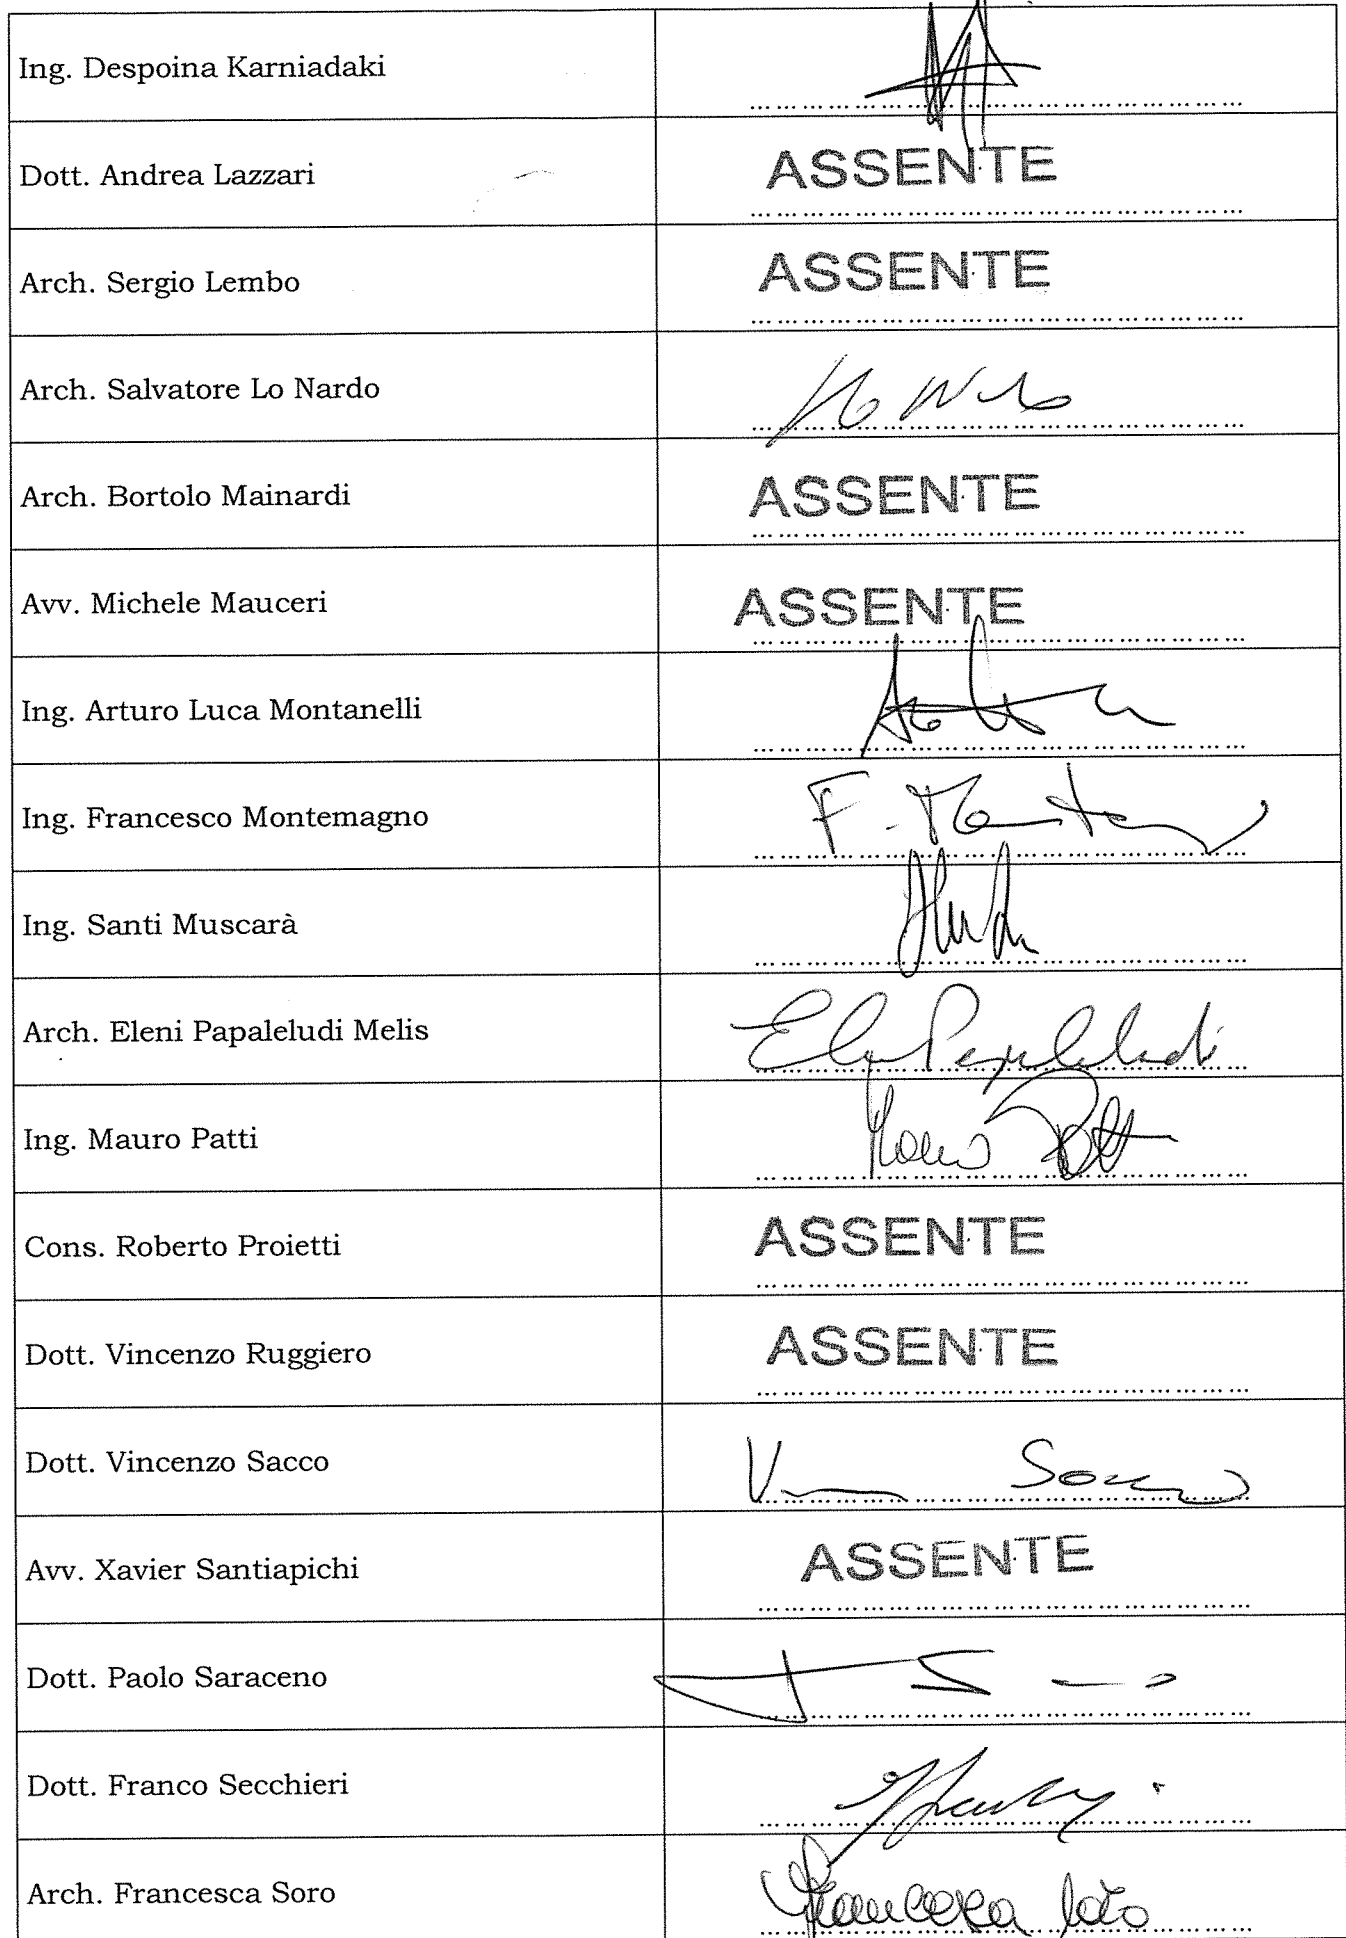 Ing. Despoina Karniadaki
Dott. Andrea Lazzari ASSENTE
Arch. Sergio Lembo ASSENTE
Arch. Salvatore Lo Nardo
Arch. Bortolo Mainardi ASSENTE
Avv. Michele Mauceri ASSENTE
Ing. Arturo Luca Montanelli
Ing. Francesco Montemagno F.
Ing. Santi Muscarà
Arch. Eleni Papaleludi Melis Papaleludi
Ing. Mauro Patti Mauro Patti
Cons. Roberto Proietti ASSENTE
Dott. Vincenzo Ruggiero ASSENTE
Dott. Vincenzo Sacco V Sacco
Avv. Xavier Santiapichi ASSENTE
Dott. Paolo Saraceno
Dott. Franco Secchieri
Arch. Francesca Soro Francesca Soro